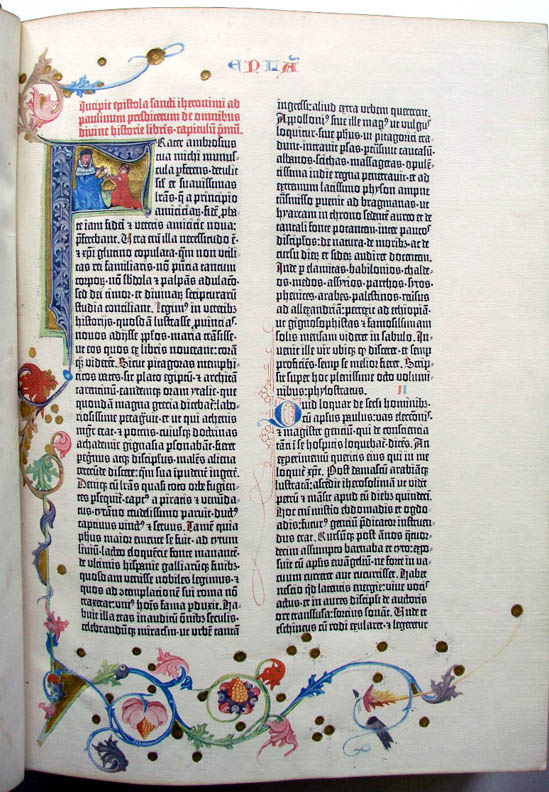 EPL'A
Incipit epistola sancti iheronimi ad
paulinum presbiterum de omnibus
divine historie libris·capitulū pmū.
Frater ambrosius
tua michi munus-
cula pferens·detulit
sil' et suavissimas
lrās·q̄ a principio
amiciciaꝝ·fidē pba-
te iam fidei et veteris amicicie nova:
pferebant. Vera eñi illa necessitudo ē·
et xpi glutino copulata·qm̄ non utili-
tas rei familiaris·nō pñcia tantum
corpoꝝ·nō subdola et palpās adulacō·
sed dei timor·et divinaꝝ scripturarū
studia conciliant. Legim⁹ in veterib⁹
historijs·quosdā lustrasse puincias·
novos adijsse pplos·maria trāsisse·
ut eos quos ex libris noverant: corā
qꝫ viderēt. Sicut pitagoras memphi-
ticos vates·sic plato egiptū·et architā
tarentinū·eandemqꝫ oram ytalie·que
quondā magna grecia dicebat̄: labo-
riosissime peragravit·et ut qui athenis
mgr̄ erat·et potens·cuiusqꝫ doctrinas
achademie gignasia psonabāt· fieret
peregrinus atqꝫ discipulus·malēs aliena
verecunde discere: qm̄ sua īpudent̄ ingerere.
Deniqꝫ cū lrās quasi toto orbe fugien-
tes psequit̄·capt⁹ a piratis et venunda-
tus·tyrāno crudelissimo paruit·duct⁹
captivus vinct⁹ et servus. Tamē quia
phus·maior emente se fuit·ad tytum
liviū·lacteo eloquētie fonte manantē·
de ultimis hispanie galliarūqꝫ finib⁹·
quosdam venisse nobiles legimus·et
quos ad cōtemplacionē sui roma nō
traxerat: uni⁹ hoīs fama pduxit. Ha-
buit illa etas inauditū oīnib⁹ seculis·
celebrandūqꝫ miraclm̄·ut urbē tantā
ingressi: aliud extra urbem quererent.
Apolloni⁹ sive ille mag⁹ ut vulgus
loquitur·sive phus·ut pitagorici tra-
dunt·intravit psas·ptrāsivit caucasū·
albanos·scithas·massagetas·opulē-
tissima indie regna penetravit·et ad
extremum latissimo physon ampne
trāsmisso pvenit ad bragmanas·ut
hyarcam in throno sedētē aureo et de
tantali fonte potantem·inter paucos
discipulos·de natura·de moribus·ac de
cursu dieꝝ et sideꝝ audiret docentem.
Inde p elamitas·babilonios·chalde-
os·medos·assyrios·parthos·syros·
phenices·arabes·palestinos·reversus
ad allexandriā: perrexit ad ethiopiā·
ut gignosophistas et famosissimam
solis mensam videret in sabulo. In-
venit ille vir ubiqꝫ qd̄ disceret·et semp
proficiēs·semp se melior fieret. Scrip-
sit super hoc plenissime octo volumi-
nibus: phylostratus. II
Quid loquar de seculi hominib⁹:
cū aplus paulus·vas electionis·
et magister gencium·qui de conscientia
tanti ī se hospitis loquebat̄·dicēs. An
experimentum queritis eius qui in me
loquit̄ xpc. Post damascū arabiāqꝫ
lustratā: ascēdit iherosolimā ut vidēt
petrū et māsit apud eū dieb⁹ quindeci.
Hoc eñi misterio ebdomadis et ogdo-
adis: futur⁹ genciū pdicator instruen-
dus erat. Rursūqꝫ post ānos q̄tuor-
decim assumpto barnaba et tyto: expo-
suit cū aplis ewāgeliū·ne forte in va-
cuum curreret aut cucurrisset. Habet
nescio qd̄ latentis energie: vive vocis
actus·et in aures discipuli de auctoris
ore transfusa: forcius sonat. Unde et
eschineus cū rodi exularet·et legeretur